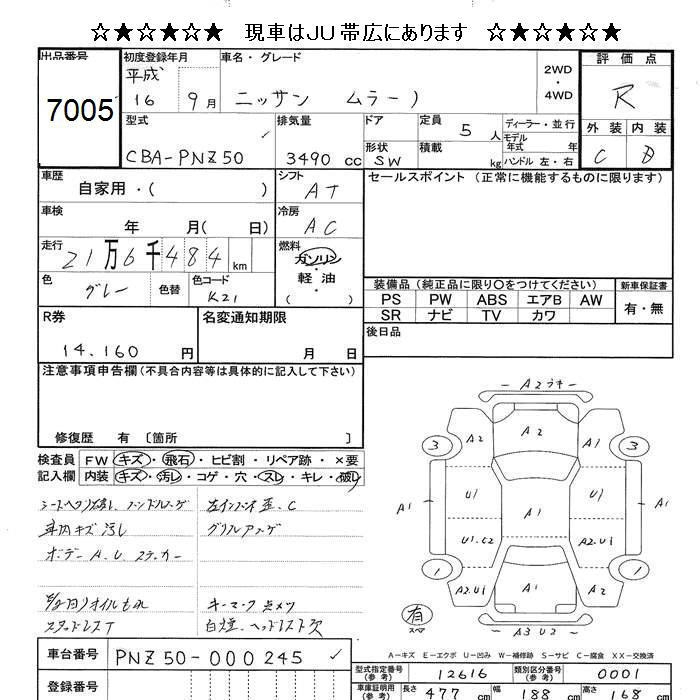 ☆★☆★☆★☆ 現車はJU帯広にあります ☆★☆★☆★☆
出品番号
7005
初度登録年月
平成
16 9月
車名・グレード
ニッサン ムラーノ
2WD
・
4WD
評価点
R
外装 内装
C D
型式
CBA-PNZ50
排気量
3490 cc
ドア
形状
SW
定員
5 人
積載
kg
ディーラー・並行
モデル
年式 年
ハンドル 左・右
車歴
自家用・( )
シフト
AT
セールスポイント (正常に機能するものに限ります)
車検
年 月( 日)
冷房
AC
走行
21万6千484km
燃料
ガソリン
・
軽油
( )
色
グレー
色替
色コード
K21
装備品(純正品に限り○をつけてください)
新車保証書
PS PW ABS エアB AW
有・無
SR ナビ TV カワ
後日品
R券
14.160 円
名変通知期限
月 日
注意事項申告欄(不具合内容等は具体的に記入して下さい)
修復歴 有 〔箇所 〕
検査員 FW キズ・飛石・ヒビ割・リペア跡・×要
記入欄 内装 キズ・汚レ・コゲ・穴・スレ・キレ・破レ
車内キズ汚レ
グリルアゲ
ボデーA.U.ステッカー
オイルもれ
キーマーク点メツ
スタッドレスT
白煙.ヘッドレスト欠
A2ワキ
A2
A2
A1
3
3
A1
U1
U1
A1
U1.C2
A2.U1
1
1
A2.U1
A1
A2
有
スペア
A3 U2
A-キズ E-エクボ U-凹み W-補修跡 S-サビ C-腐食 XX-交換済
車台番号 PNZ50-000245
登録番号
型式指定番号
(参考)
12616
類別区分番号
(参考)
0001
車庫証明用
(参考)
長さ 477 cm
幅 188 cm
高さ 168 cm